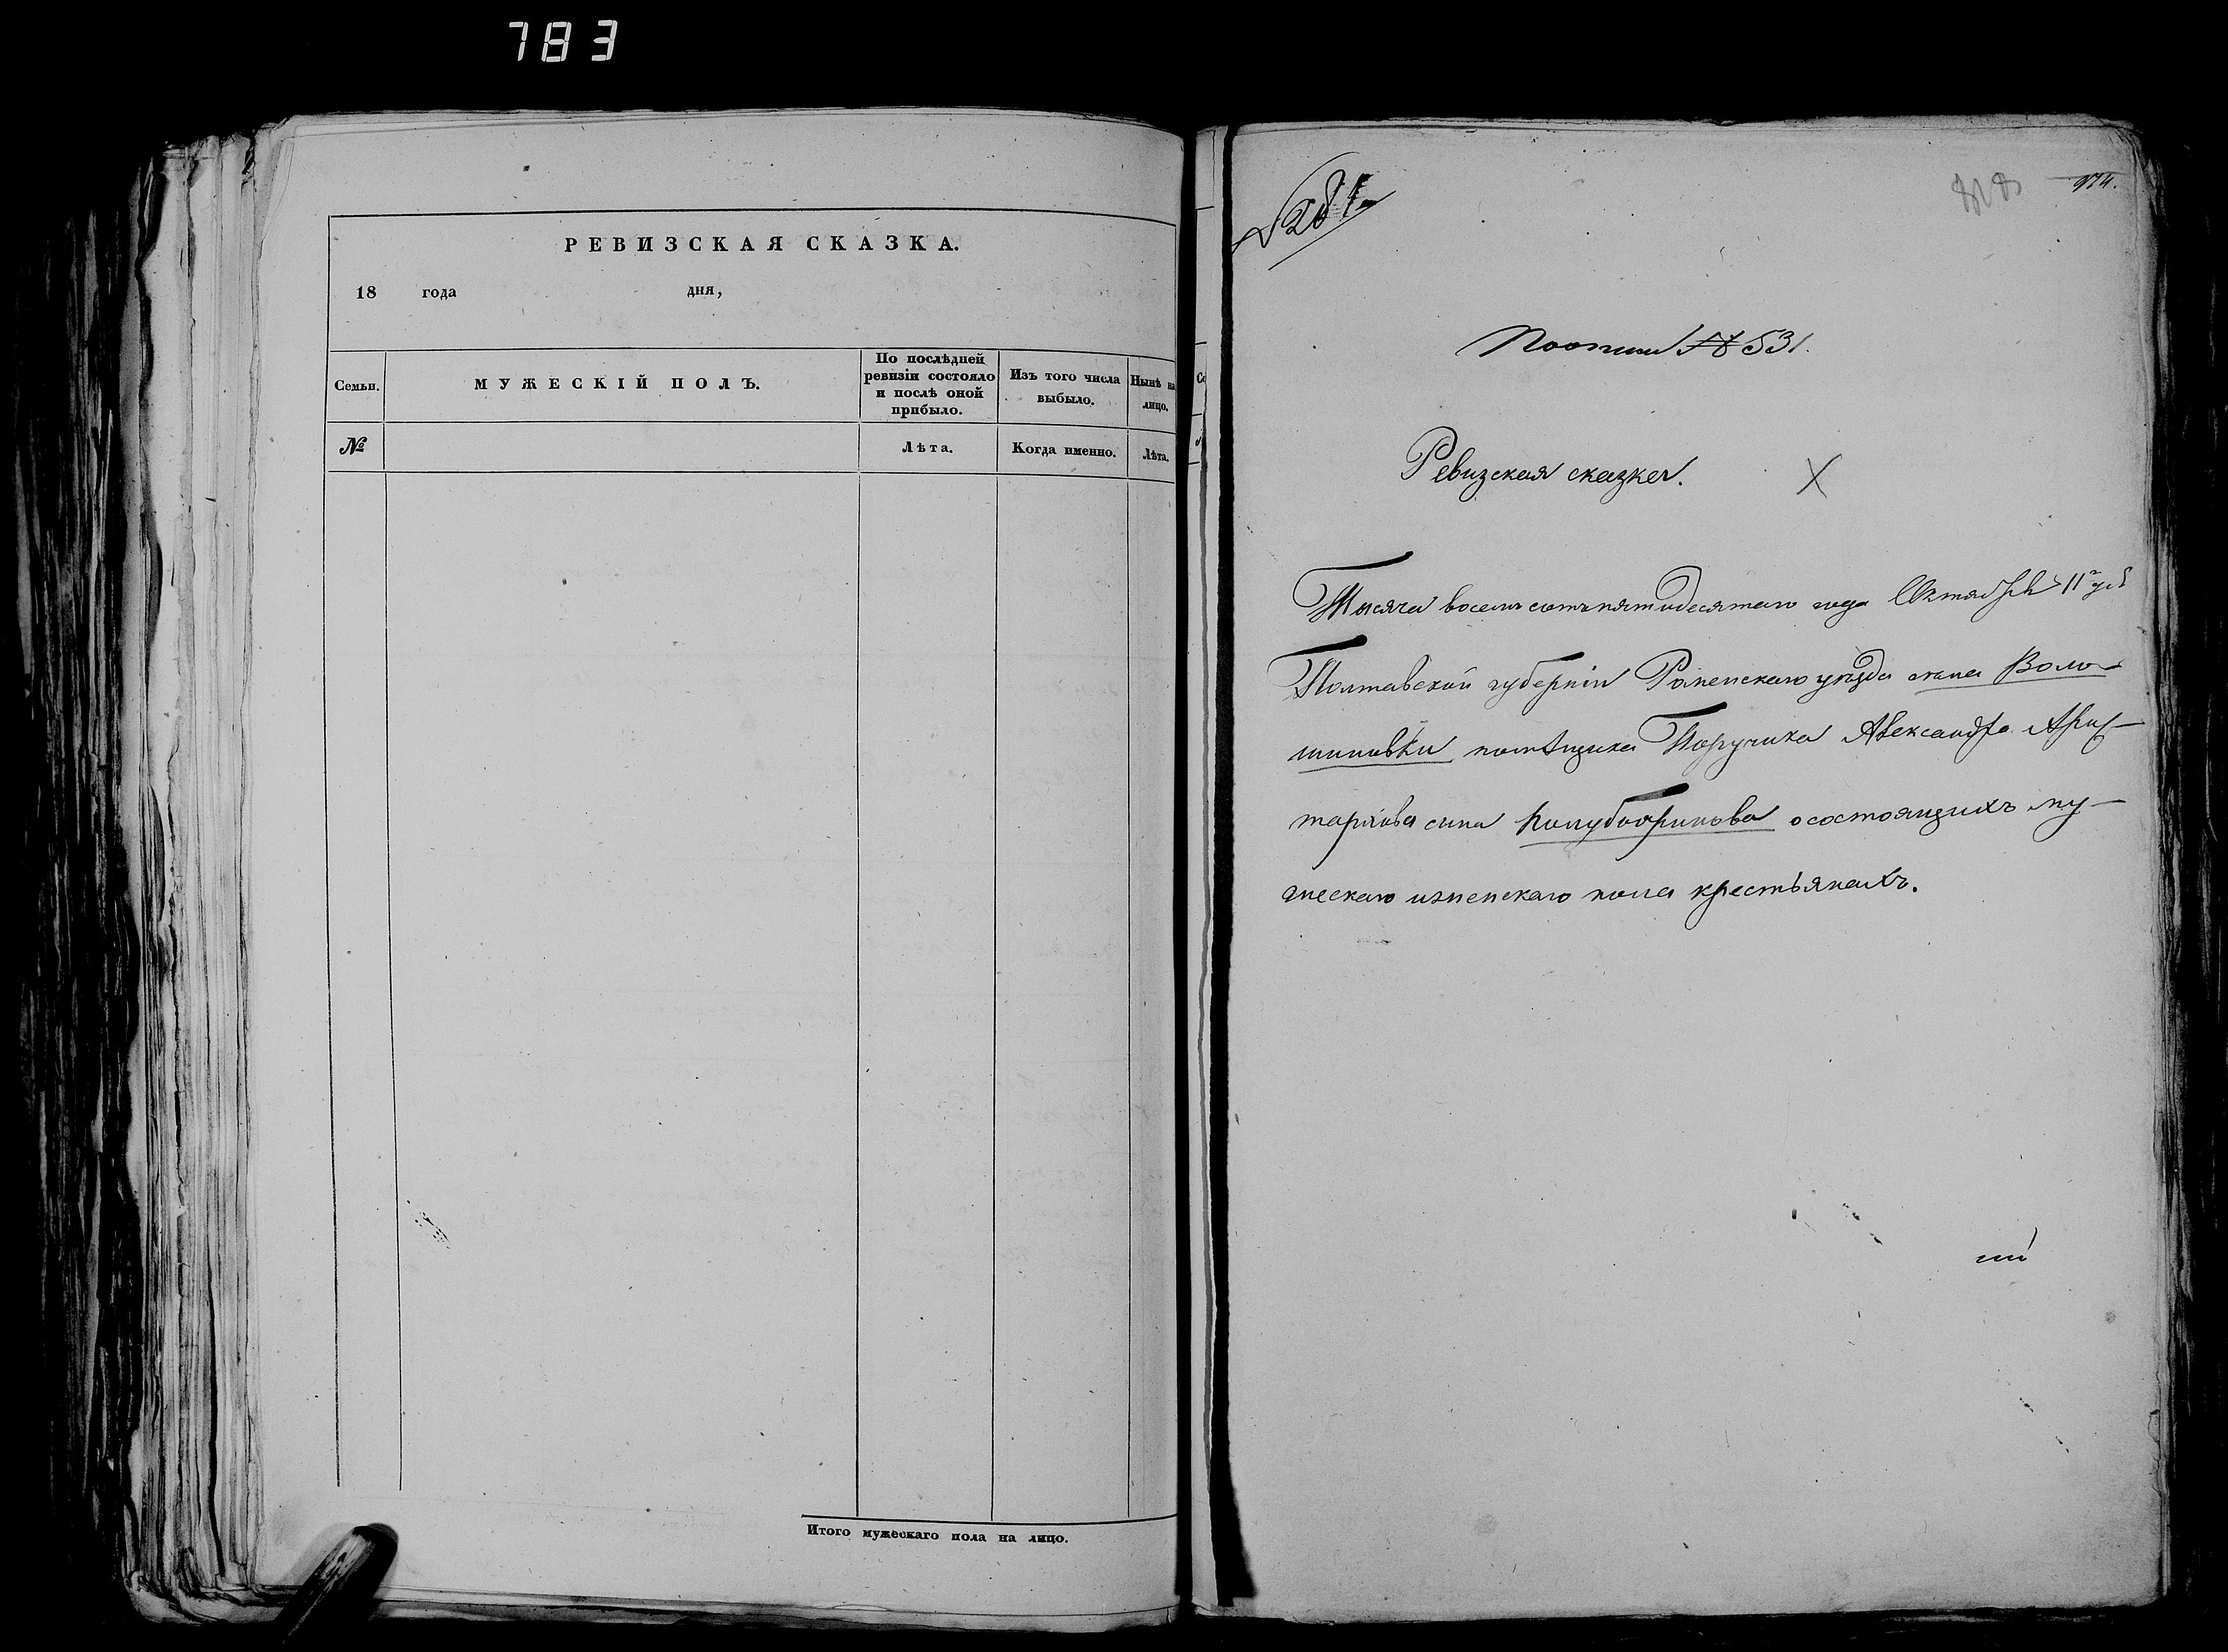 783
РЕВИЗСКАЯ СКАЗКА.
18 года дня,
Семьи.
МУЖЕСКІЙ ПОЛЪ.
По послѣдней
ревизіи состояло
и послѣ оной
прибыло.
Изъ того числа
выбыло.
Нынѣ на
лицо.
№
Лѣта.
Когда именно.
Лѣта.
Итого мужескаго пола на лицо.
974.
№ 531.
Ревизская сказка.
Тысяча восемсотъ пятидесятаго года Октября 11 дня
Полтавской губерніи Роменскаго уѣзда села Воло-
шиновки помѣщика Поручика Александра Арис-
тархова сына Полуботаринова о состоящихъ му-
жескаго и женскаго пола крестьянахъ.